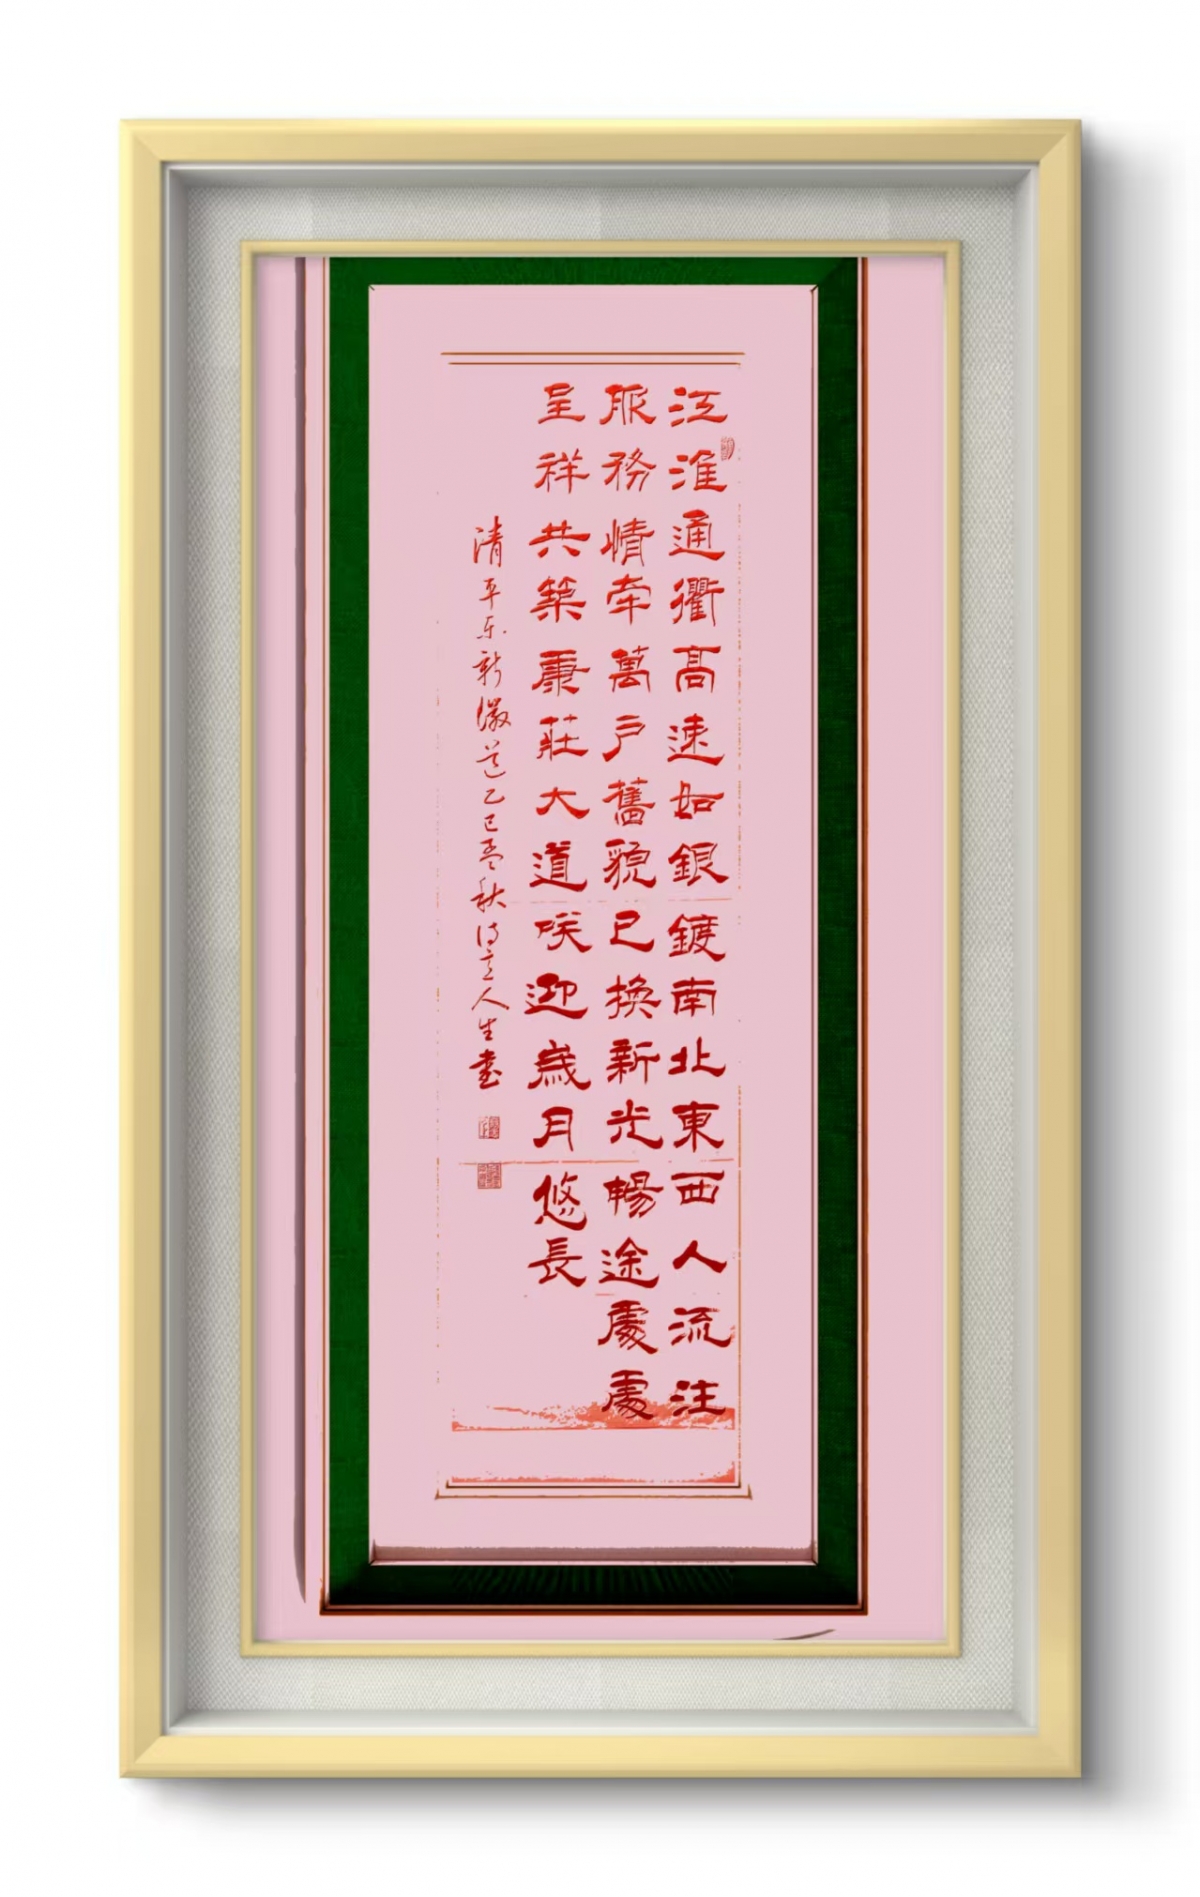 江淮通衢高速如銀鍍南北東西人流注
服務情牽萬戶舊貌已換新光暢途處處
呈祥共築康莊大道咲迎歲月悠長
清平乐新徽道乙巳孟秋诗立人生書